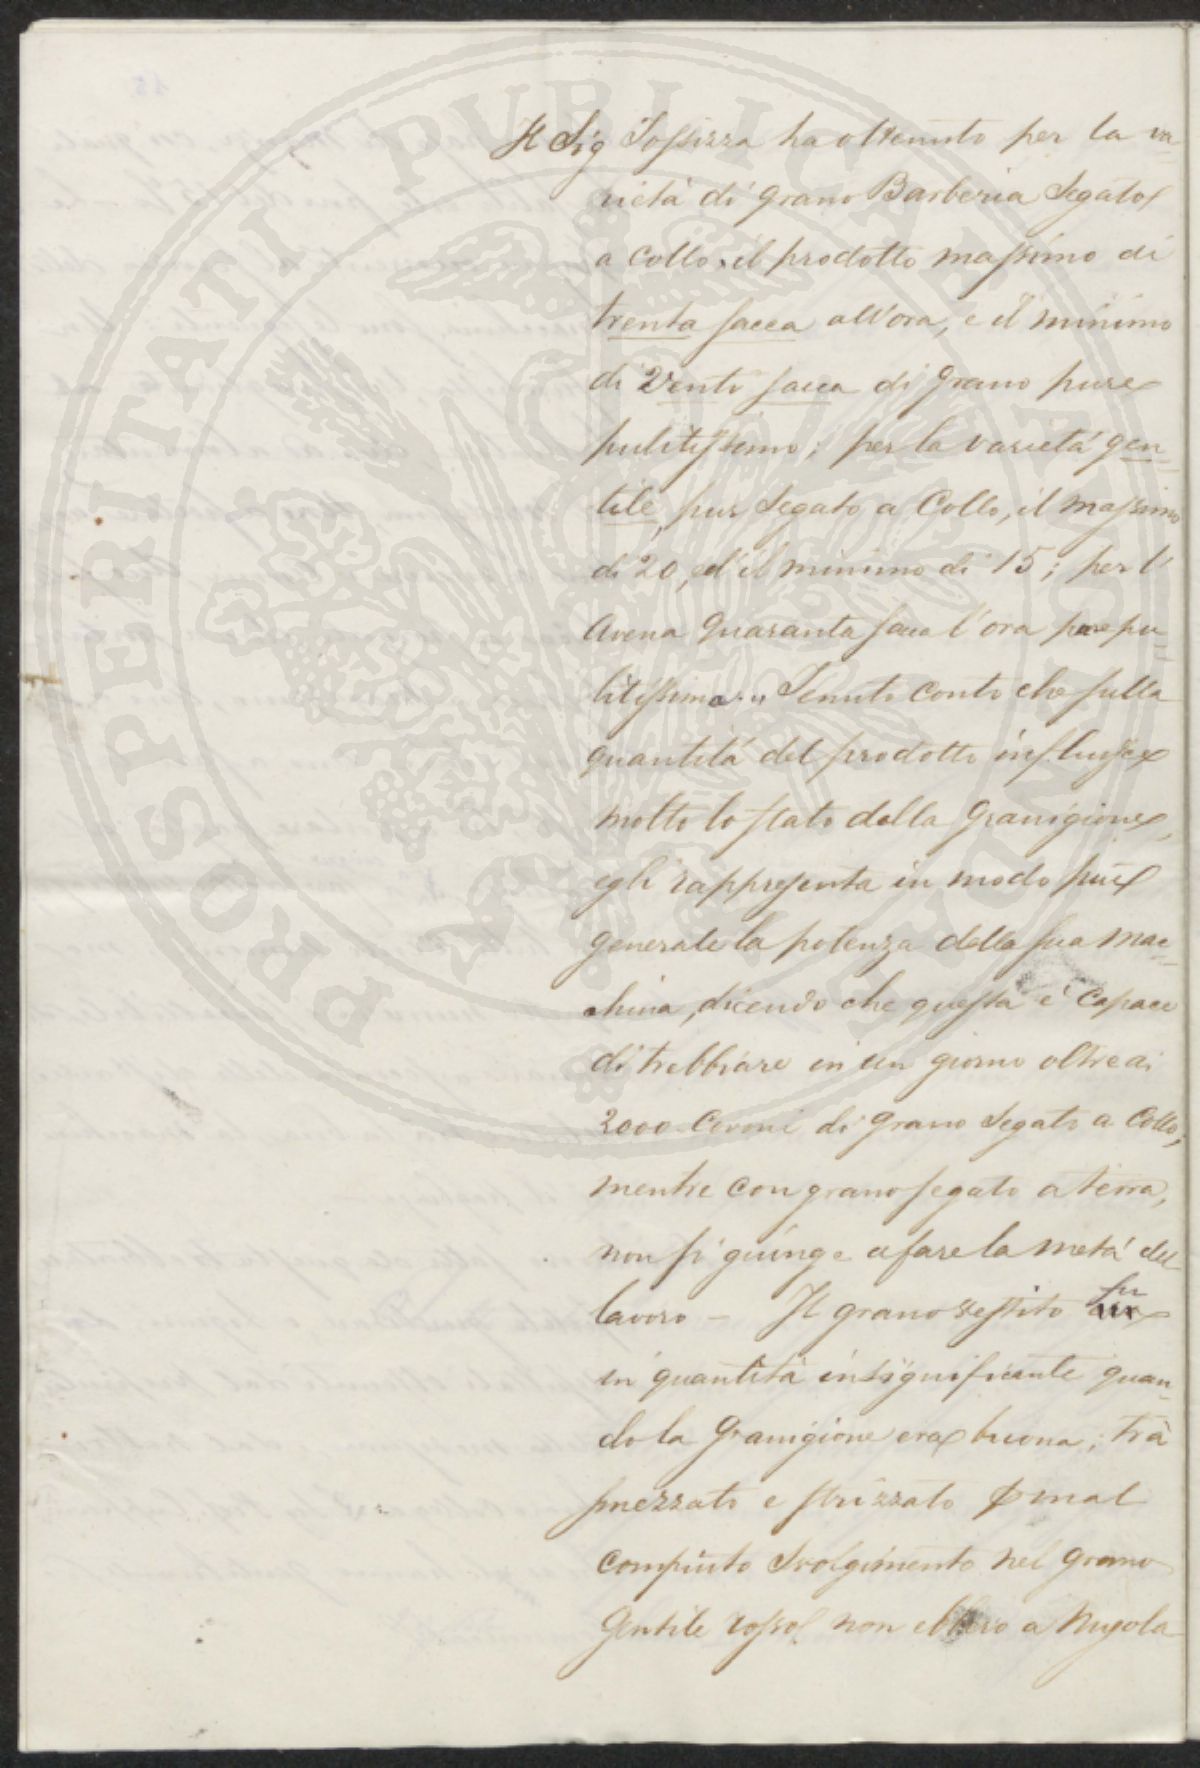 Il Sig Tossizza ha ottenuto per la va-
rietà di grano Barberia Segato
a collo, il prodotto massimo di
trenta sacca all'ora, e il minimo
di Venti sacca di grano pure
pulitissimo; per la varietá gen-
tile, pur Segato a Collo, il massimo
di 20, ed il minimo di 15; per l'
avena quaranta sacca l'ora pure pu-
litissima. Tenuto conto che sulla
quantitá del prodotto influisce
molto lo stato della granigione,
egli rappresenta in modo più
generale la potenza della sua mac-
china, dicendo che questa é capace
di trebbiare in un giorno oltre ai
2000 Covoni di grano Segato a Collo;
mentre con grano segato a terra,
non si giunge a fare la metá del
lavoro – Il grano vestito fu
in quantità insignificante quan-
do la granigione era buona; trà
smezzato e strizzato
compiuto Svolgimento nel grano
Gentile rosso, non ebbero a Nugola
PROSPERITATI PUBLICAE AUGENDAE